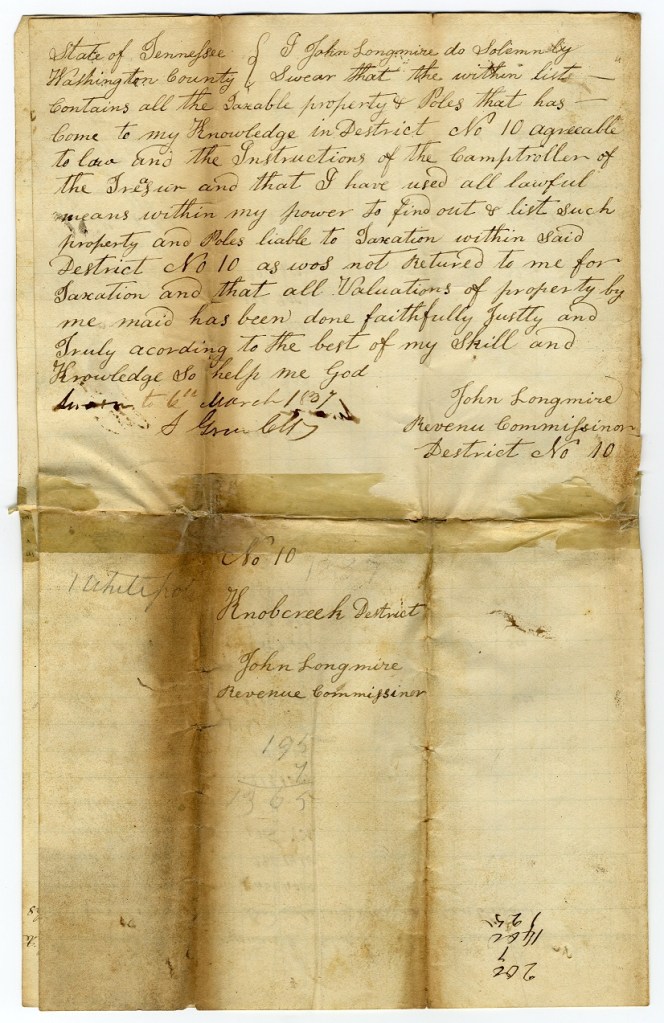 State of Tennessee { I John Longmire do Solemnly
Washington County { Swear that the within lists —
Contains all the Taxable property & Poles that has —
Come to my Knowledge in District No 10 agreeable
to law and the Instructions of the Camptroller of
the Treasur and that I have used all lawful
means within my power to find out & list such
property and Poles liable to Taxation within said
District No 10 as was not Retured to me for
Taxation and that all Valuations of property by
me maid has been done faithfully Justly and
Truly acording to the best of my Skill and
Knowledge So help me God
Sworn to 6th March 1837
John Longmire
Revenu Commissinor
District No 10
No 10
1 White
Knobcreek District
John Longmire
Revenue Commissinor
195
7
1365
202
7